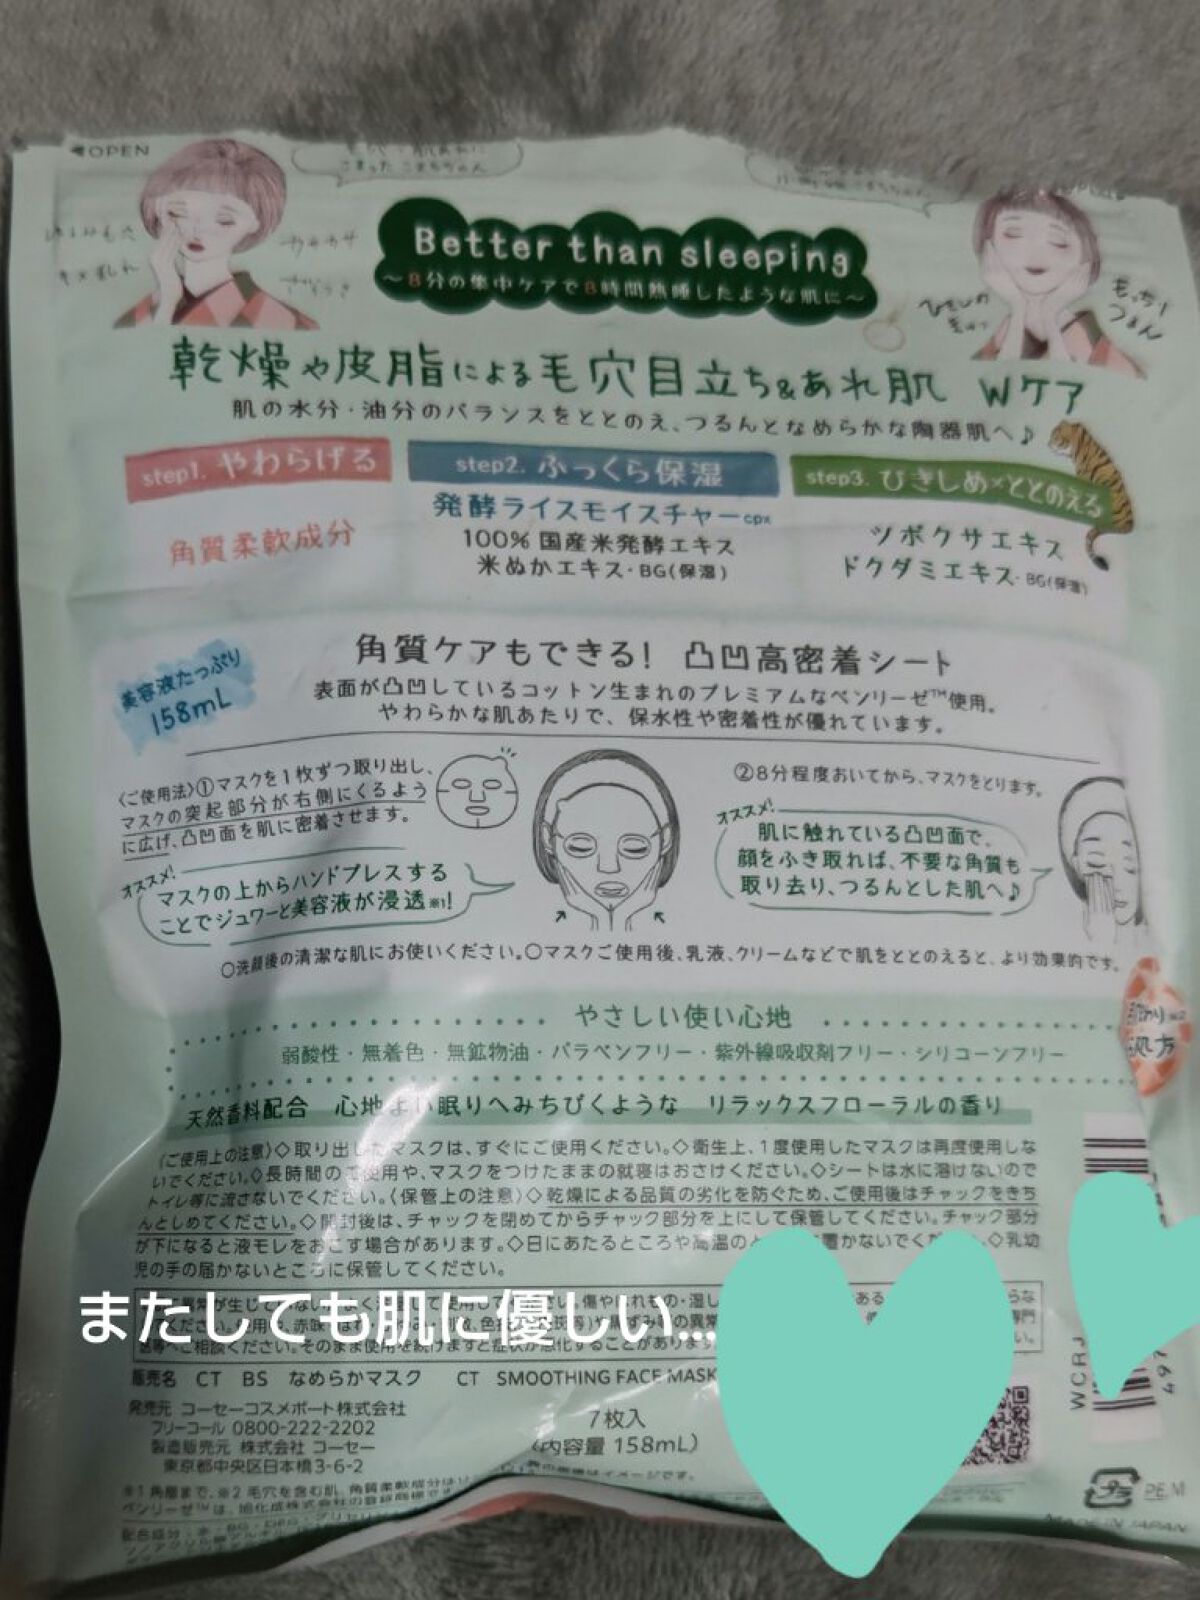 OPEN
Better than sleeping
〜8分の集中ケアで8時間熟睡したような肌に〜
乾燥や皮脂による毛穴目立ち&あれ肌 Wケア
肌の水分・油分のバランスをととのえ、つるんとなめらかな陶器肌へ♪
step1. やわらげる
角質柔軟成分
step2. ふっくら保湿
発酵ライスモイスチャーcpx
100% 国産米発酵エキス
米ぬかエキス・BG(保湿)
step3. ひきしめ×ととのえる
ツボクサエキス
ドクダミエキス・BG(保湿)
美容液たっぷり
158mL
角質ケアもできる! 凸凹高密着シート
表面が凸凹しているコットン生まれのプレミアムなベンリーゼ™使用。
やわらかな肌あたりで、保水性や密着性が優れています。
〈ご使用法〉①マスクを1枚ずつ取り出し、
マスクの突起部分が右側にくるよう
に広げ、凸凹面を肌に密着させます。
オススメ!
マスクの上からハンドプレスする
ことでジュワーと美容液が浸透※1!
②8分程度おいてから、マスクをとります。
オススメ!
肌に触れている凸凹面で、
顔をふき取れば、不要な角質も
取り去り、つるんとした肌へ♪
○洗顔後の清潔な肌にお使いください。○マスクご使用後、乳液、クリームなどで肌をととのえると、より効果的です。
やさしい使い心地
弱酸性・無着色・無鉱物油・パラベンフリー・紫外線吸収剤フリー・シリコーンフリー
処方
天然香料配合 心地よい眠りへみちびくような リラックスフローラルの香り
〈ご使用上の注意〉◇取り出したマスクは、すぐにご使用ください。◇衛生上、1度使用したマスクは再度使用しな
いでください。◇長時間のご使用や、マスクをつけたままの就寝はおさけください。◇シートは水に溶けないので
トイレ等に流さないでください。〈保管上の注意〉◇乾燥による品質の劣化を防ぐため、ご使用後はチャックをきち
んとしめてください。◇開封後は、チャックを閉めてからチャック部分を上にして保管してください。チャック部分
が下になると液モレをおこす場合があります。◇日にあたるところや高温のと 置かないでください。◇乳幼
児の手の届かないところに保管してください。
またしても肌に優しい...
販売名 CT BS なめらかマスク CT SMOOTHING FACE MASK
発売元 コーセーコスメポート株式会社
フリーコール 0800-222-2202
製造販売元 株式会社 コーセー
東京都中央区日本橋3-6-2
7枚入
(内容量 158mL)
WCRJ
PE,M
MADE IN JAPAN